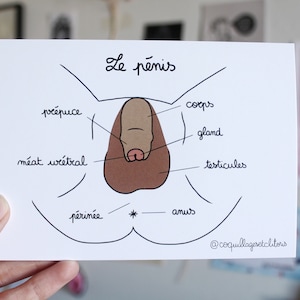 Le pénis
corps
prépuce
gland
méat urétral
testicules
périnée
anus
@coquillagesetclitoris